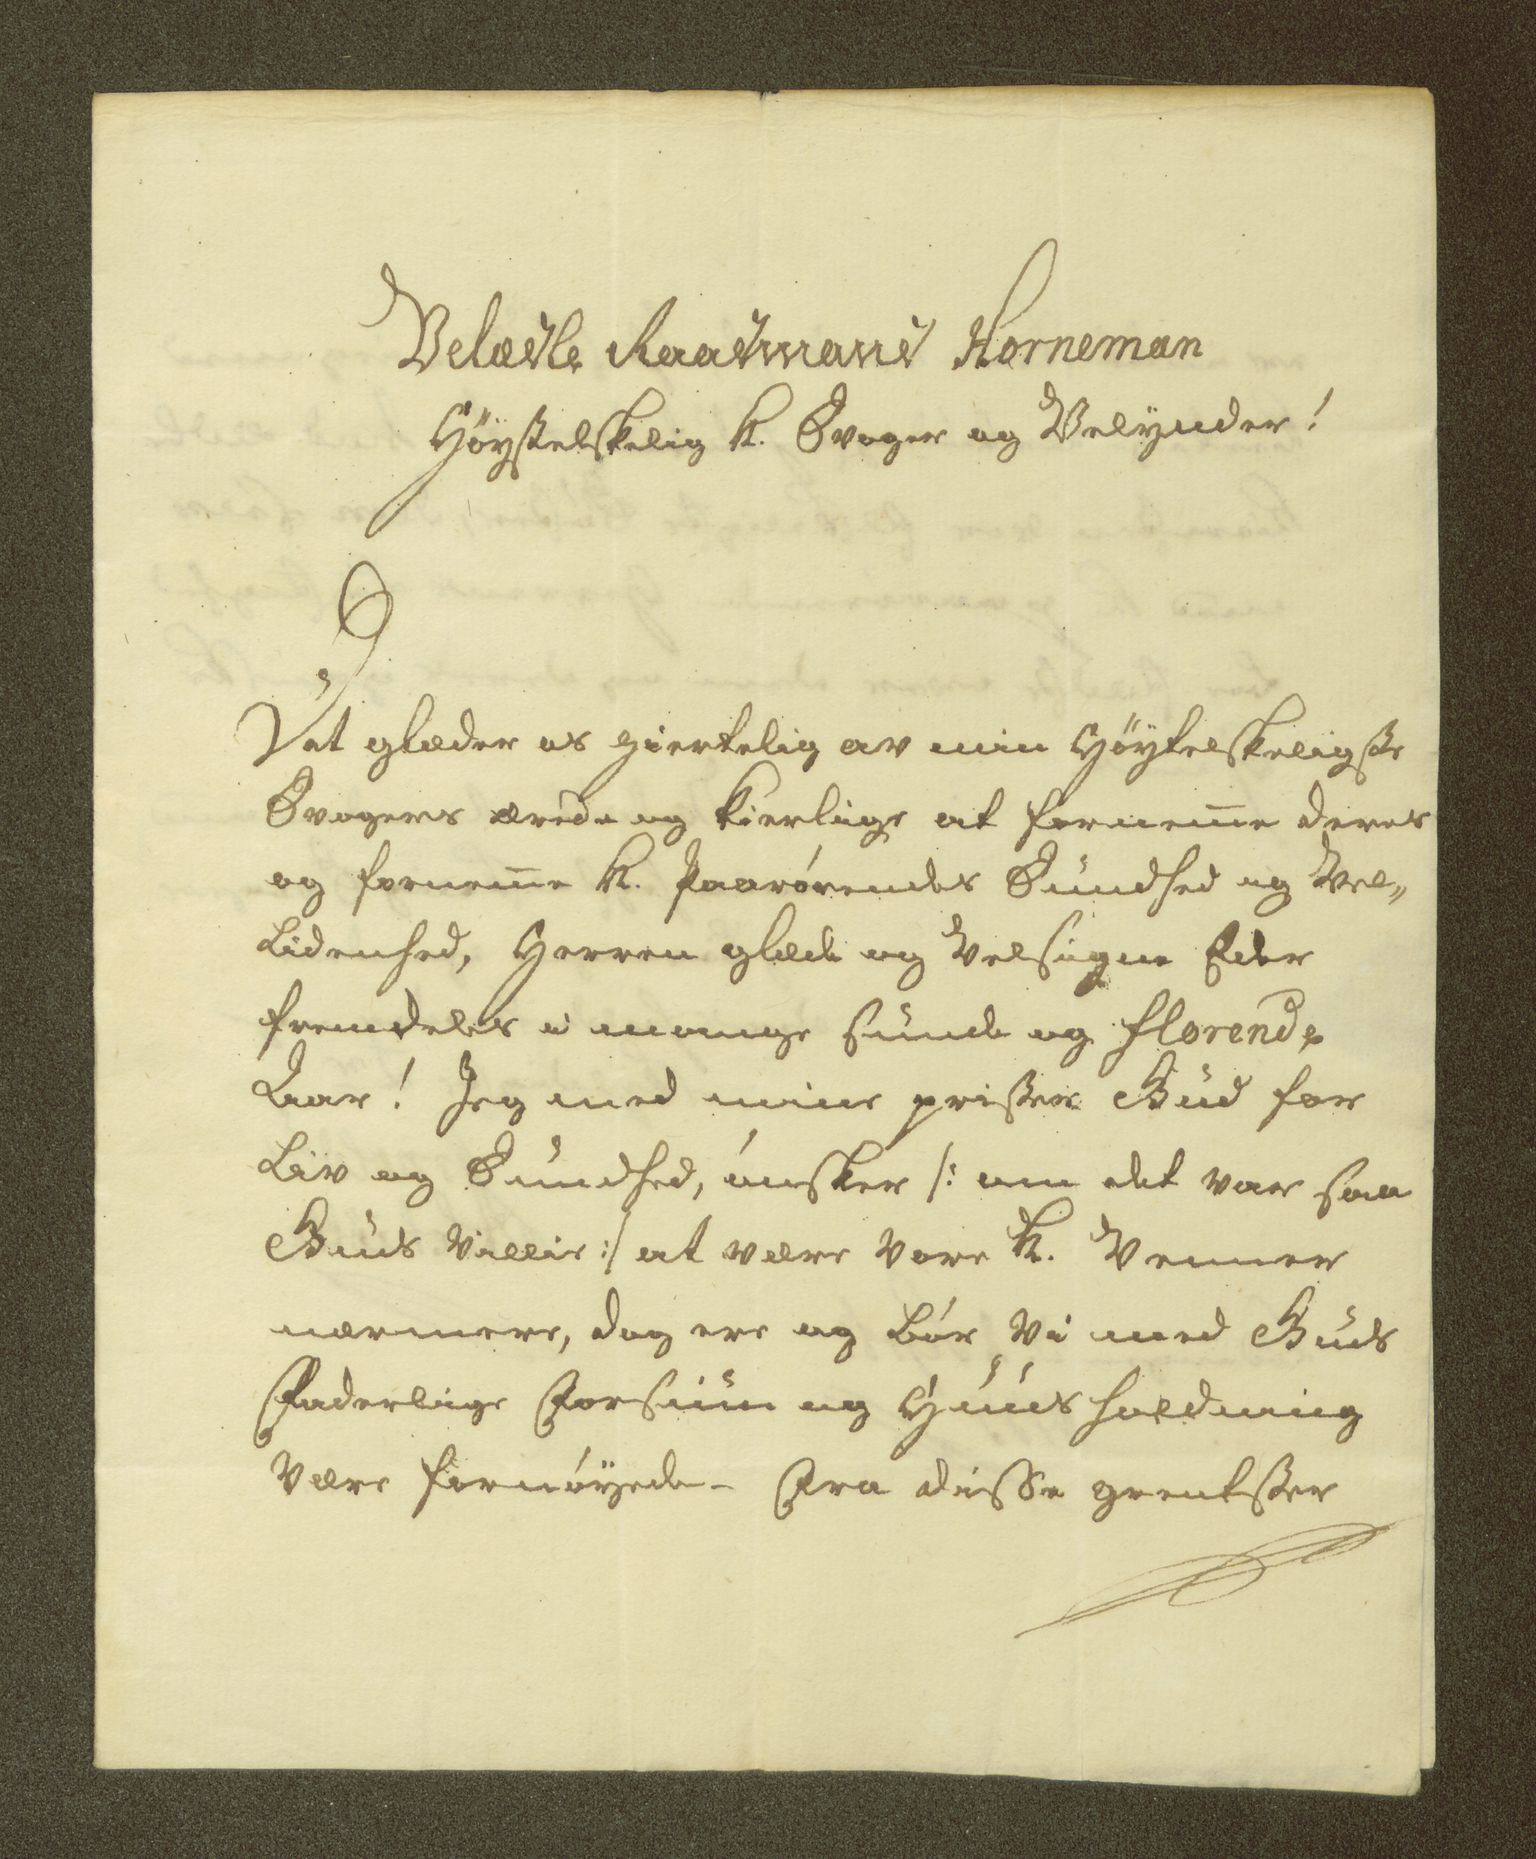 Velædle Raadmand Horneman
Höystelskelig K. Svoger og Velynder!
Det glæder os hiertelig av min Höytelskeligste
Svogers ærede og kierlige at fornemme deres
og fornemme K. Paarörendes Sundhed og Vel„
lidenhed, Herren glæde og Velsigne Eder
fremdeles i mange sunde og florende
Aar! Jeg med mine priser Gud for
Liv og Sundhed, önsker /: om det var saa
Guds Villie :/ at være vore K. Venner
nærmere, dog ere og bör Vi med Guds
Faderlige Forsiun og Huusholdning
være fornöyede - Fra disse grentser